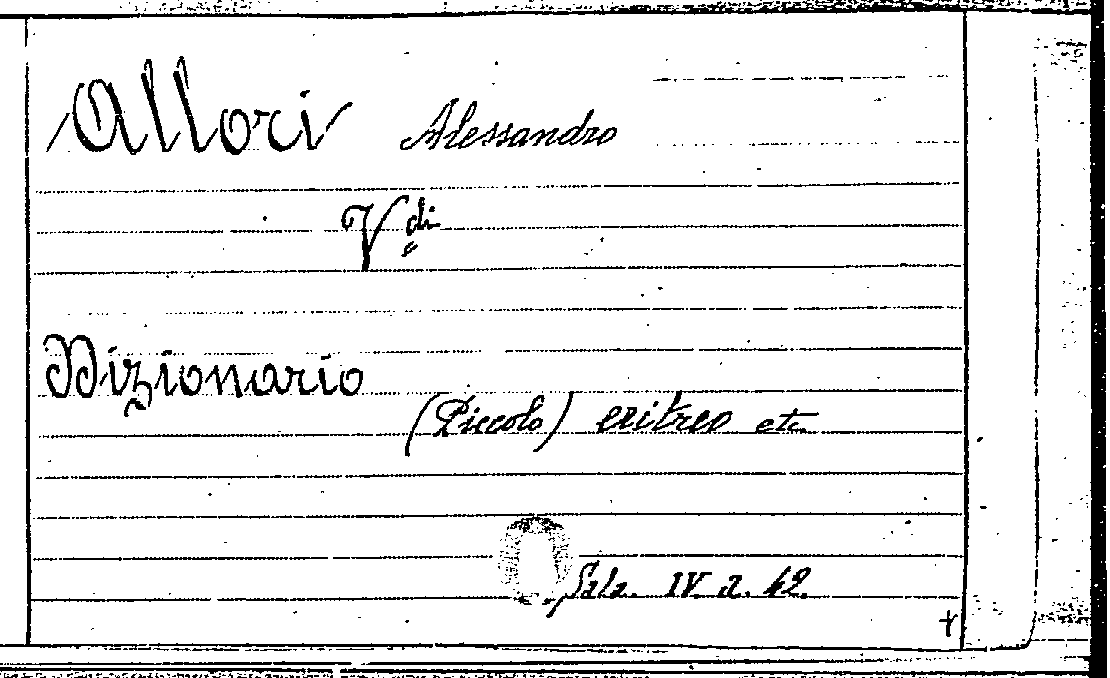 Allori Alessandro
Vdi
Dizionario
(Piccolo) eritreo etc.
Sala. IV. a. 42.